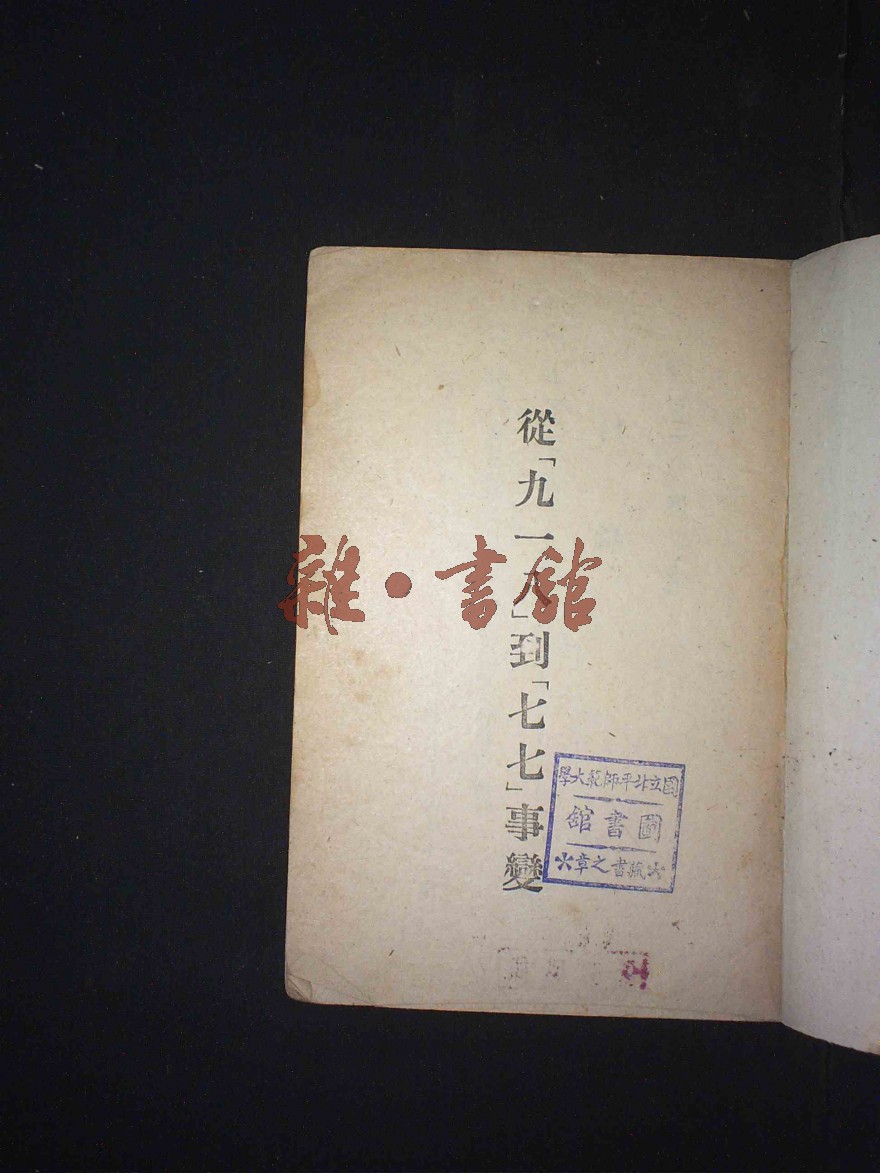 從「九一八」到「七七」事變
雜・書館
國立北平師範大學
圖書館
藏書之章